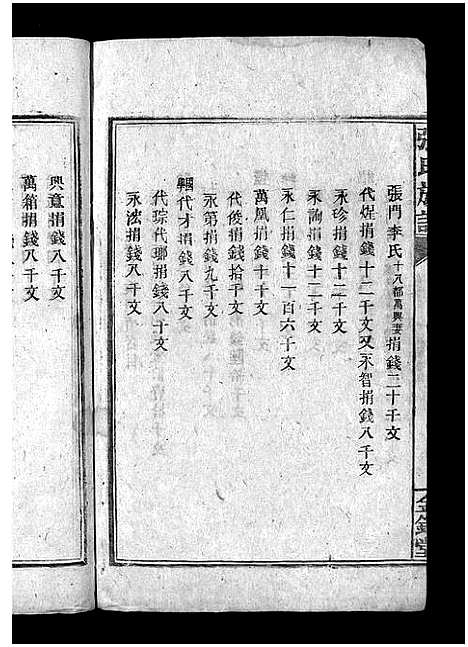 張氏族譜
張門李氏十八都萬興妻捐錢二十千文
代煋捐錢十二千文又永智捐錢八千文
永珍捐錢十二千文
永詢捐錢十二千文
永仁捐錢十一百六千文
萬鳳捐錢十千文
代俊捐錢拾千文
永第捐錢九千文
代才捐錢八千文
代琮代瑯捐錢八千文
永浤捐錢八千文
興意捐錢八千文
萬箱捐錢八千文